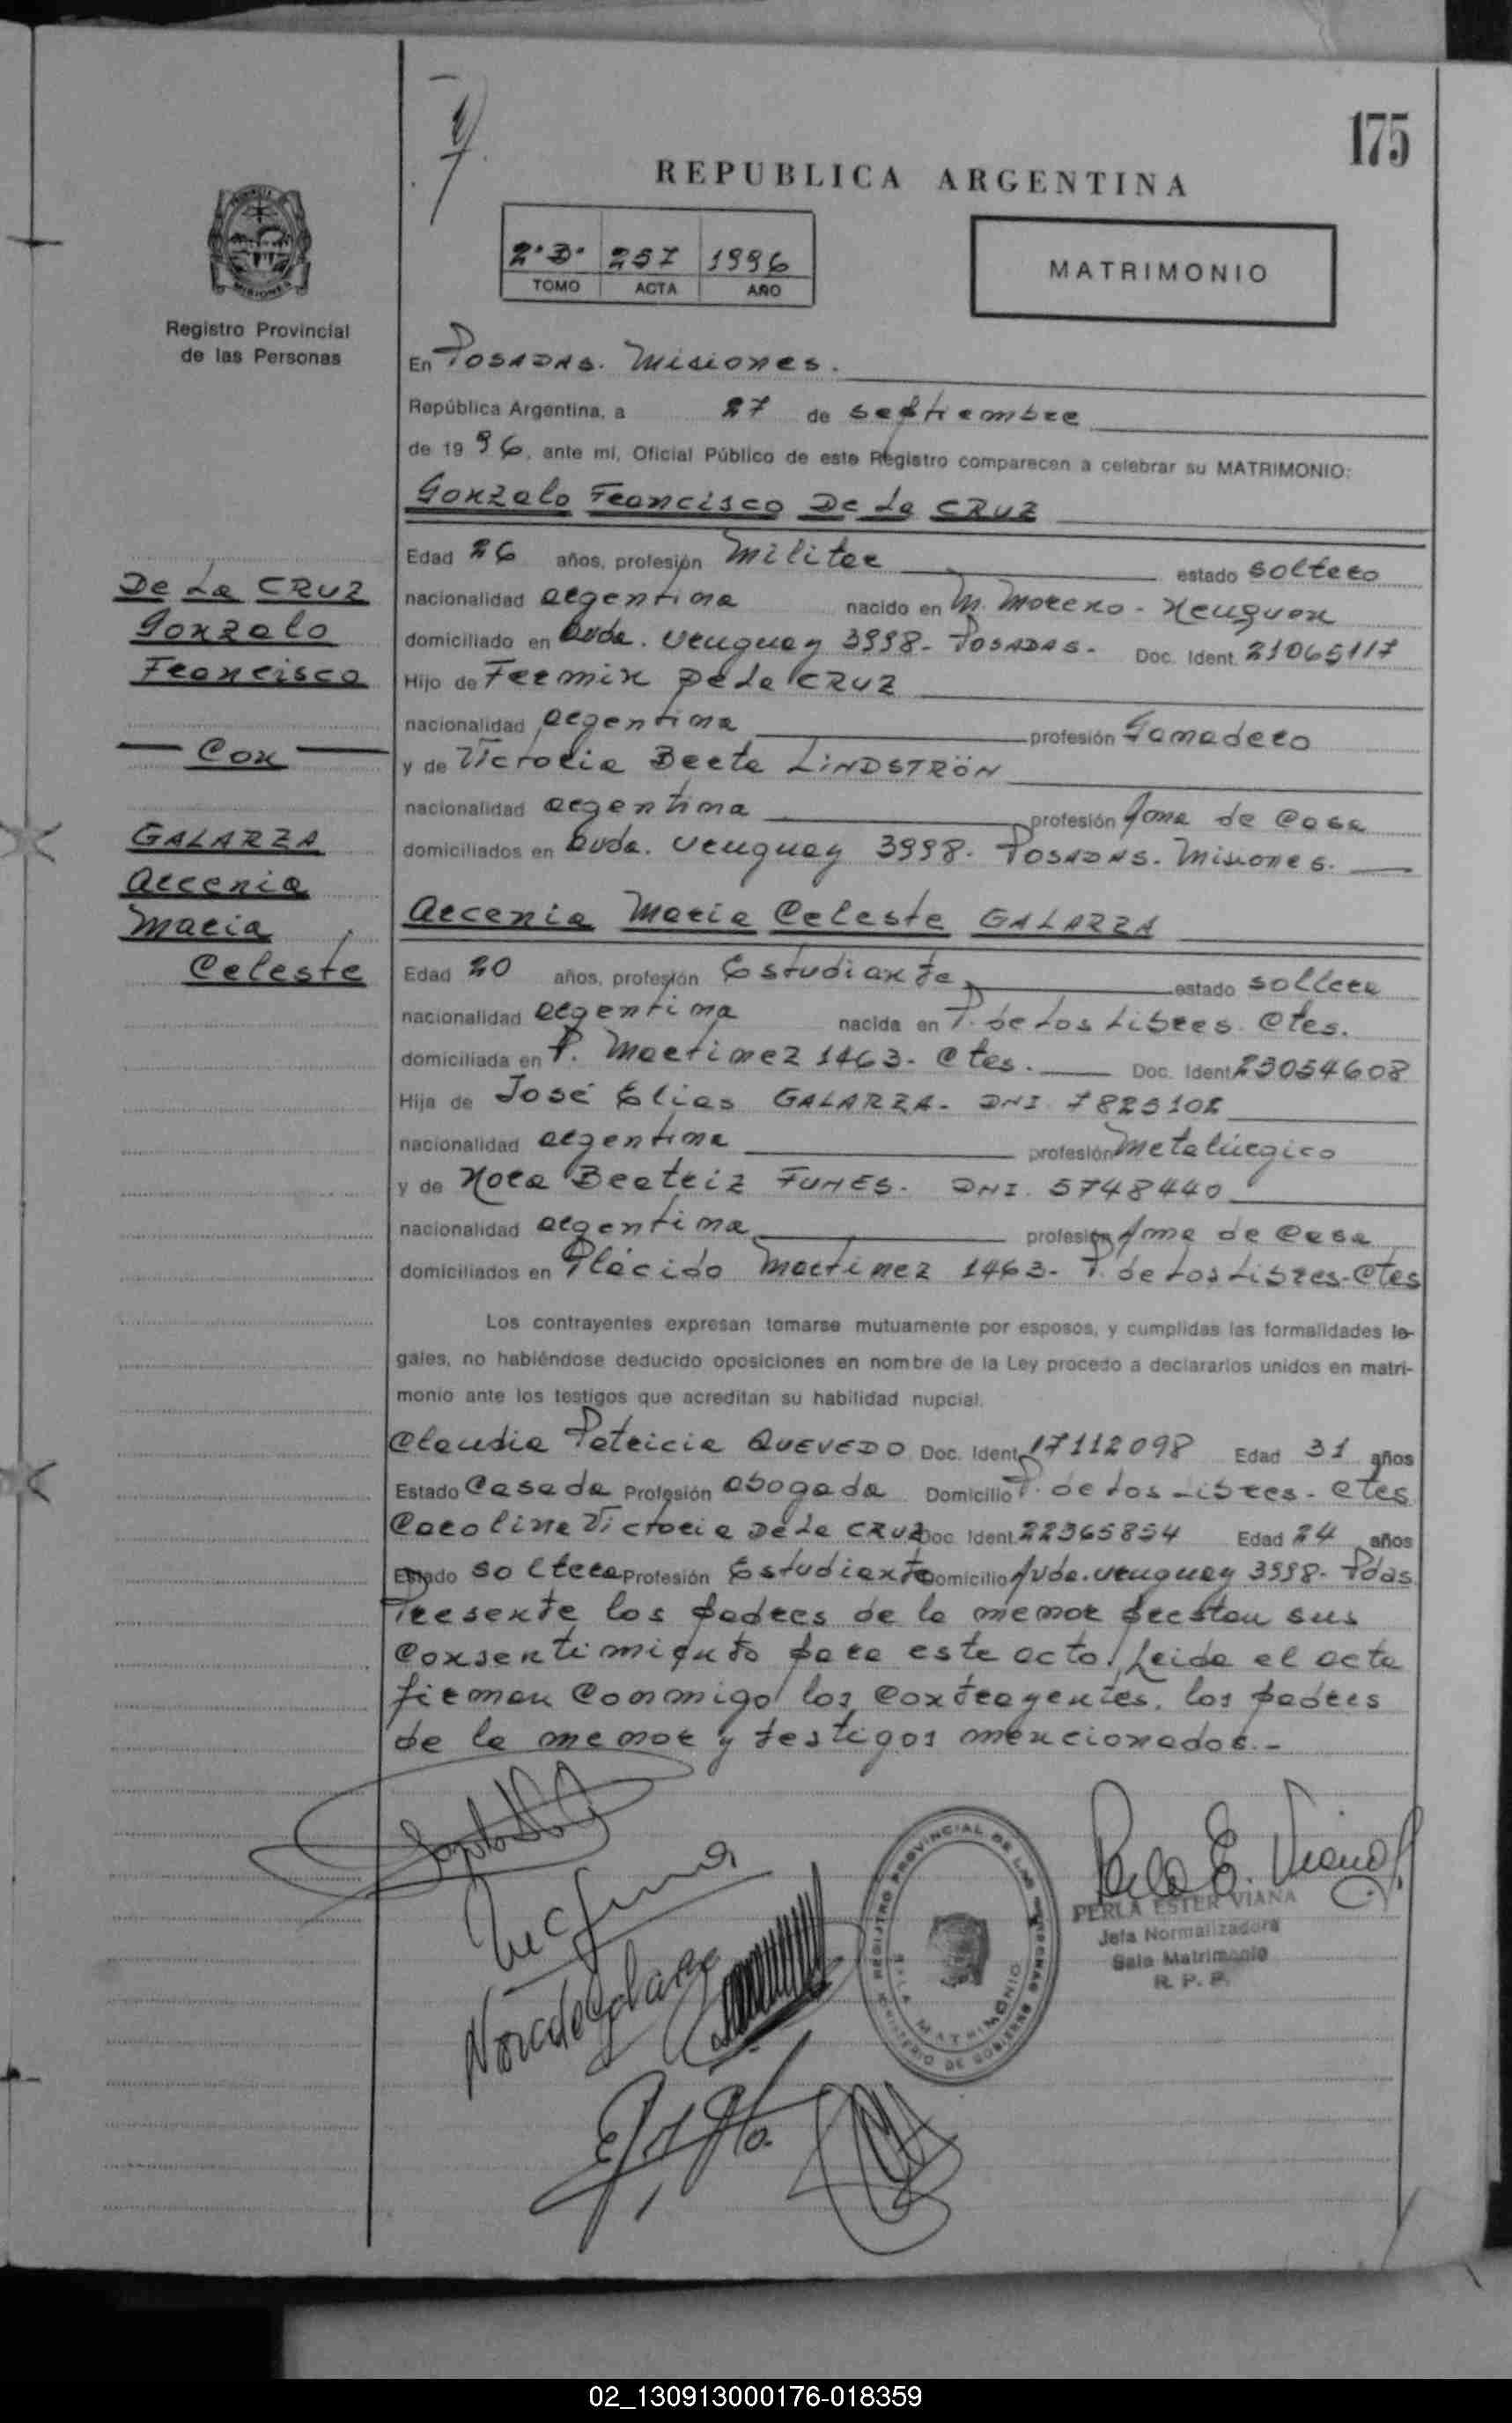 175
REPUBLICA ARGENTINA
2º D. 257 1996
TOMO ACTA AÑO
MATRIMONIO
Registro Provincial
de las Personas
En Posadas. Misiones.
República Argentina, a 27 de septiembre
de 1996, ante mí, Oficial Público de este Registro comparecen a celebrar su MATRIMONIO:
Gonzalo Francisco De La CRUZ
Edad 26 años, profesión Militar estado soltero
nacionalidad argentina nacido en M. Moreno - Neuquen
domiciliado en Avda. Uruguay 3998- Posadas- Doc. Ident. 21065117
Hijo de Fermin De La CRUZ
nacionalidad argentina profesión Ganadero
y de Victoria Berta LINDSTRÖN
nacionalidad argentina profesión Ama de Casa
domiciliados en Avda. Uruguay 3998- Posadas- Misiones.
De La CRUZ
Gonzalo
Francisco
Con
GALARZA
Arcenia
Maria
Celeste
Arcenia Maria Celeste GALARZA
Edad 20 años, profesión Estudiante estado soltera
nacionalidad argentina nacida en P. de Los Libres. Ctes.
domiciliada en P. Martinez 1463- Ctes. Doc. Ident. 23054608
Hija de José Elias GALARZA- DNI
nacionalidad argentina profesión Metalúrgico
y de Nora Beatriz FUNES- DNI. 5748440
nacionalidad argentina profesión Ama de Casa
domiciliados en Plácido Martinez 1463- P. de Los Libres-Ctes
Los contrayentes expresan tomarse mutuamente por esposos, y cumplidas las formalidades le-
gales, no habiéndose deducido oposiciones en nombre de la Ley procedo a declararlos unidos en matri-
monio ante los testigos que acreditan su habilidad nupcial.
Claudia Patricia QUEVEDO Doc. Ident. 17112098 Edad 31 años
Estado Casada Profesión Abogada Domicilio P. de Los Libres- Ctes
Carolina Victoria De La CRUZ Doc. Ident. 22365854 Edad 24 años
Estado soltera Profesión Estudiante Domicilio Avda. Uruguay 3998- Pdas
Presente los padres de la menor prestan sus
Consentimiento para este acto. Leida el acta
firman Conmigo los Contrayentes, los padres
de la menor y testigos mencionados.-
Perla E. Viana
PERLA ESTER VIANA
Jefa Normalizadora
Sala Matrimonio
R. P. P.
REGISTRO PROVINCIAL DE LAS PERSONAS
MINISTERIO DE GOBIERNO
SALA MATRIMONIO
02_130913000176-018359